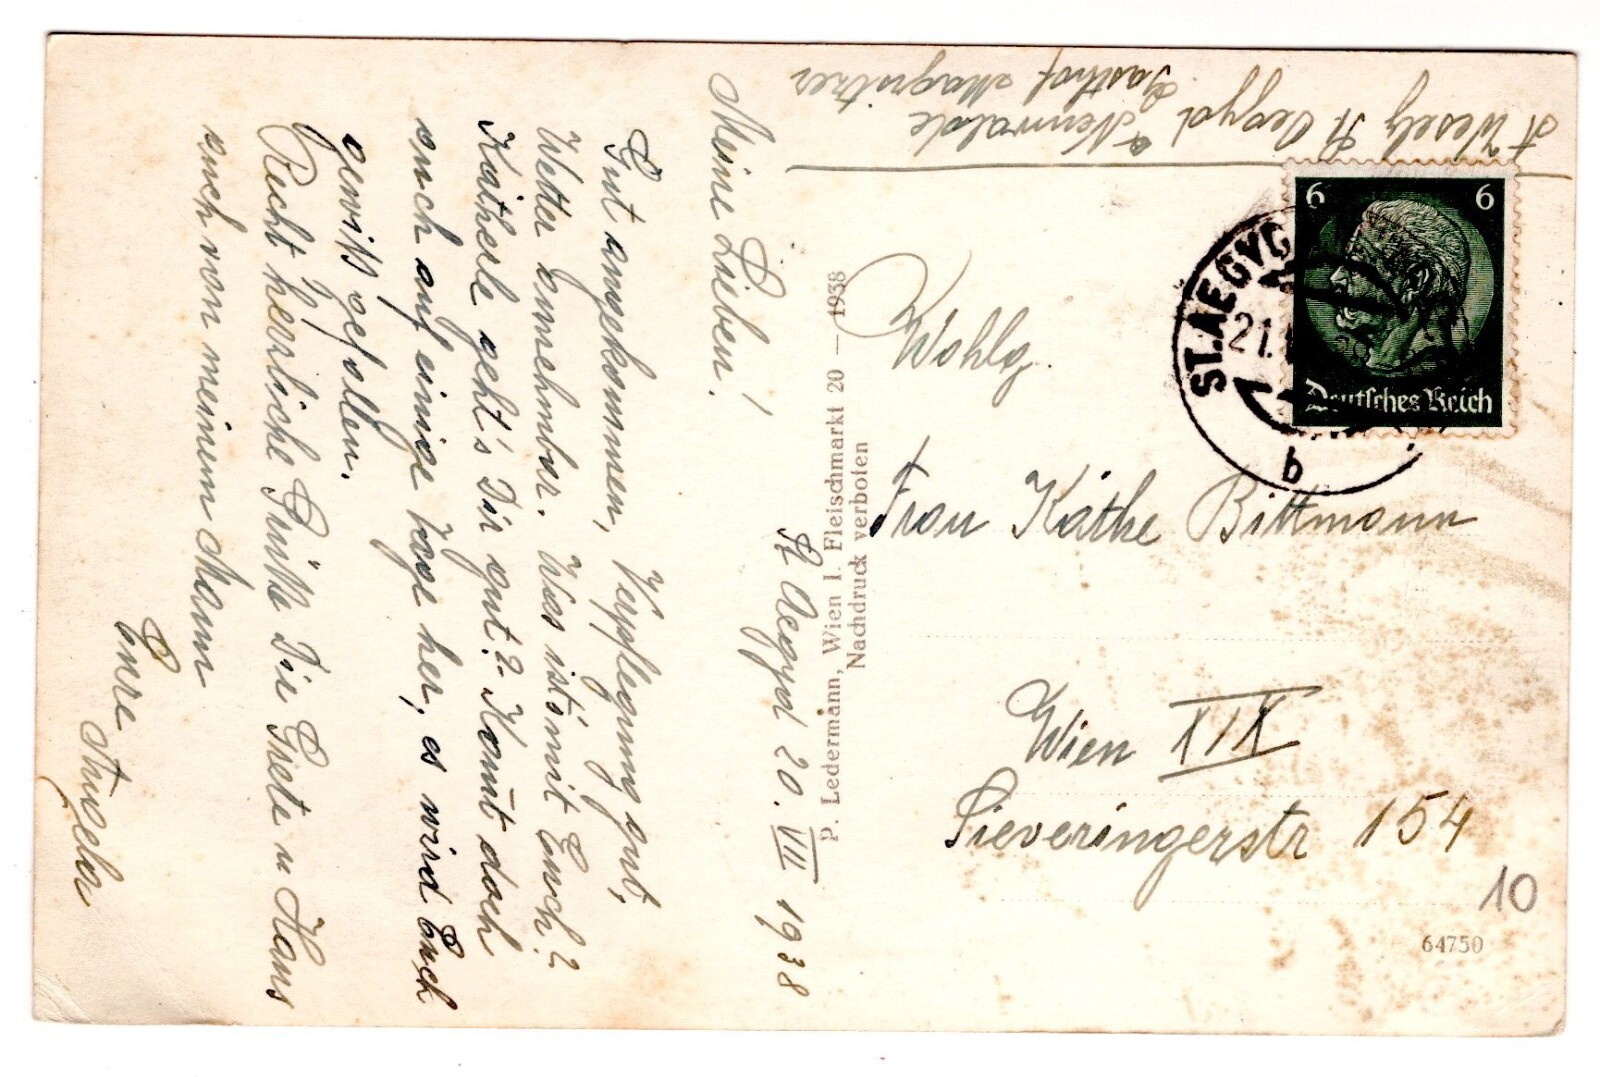 St Aegyd 20. VIII 1938
Meine Lieben!
Gut angekommen, Verpflegung gut,
Wetter annehmbar. Was ist mit Euch?
Katherle geht's Dir gut? Kom̅t doch
auch auf einige Tage her, es wird Euch
gewiß gefallen.
Recht herrliche Grüße Dir Grete u Hans
auch von meinem Mann
Eure
A Wesely St Aegyd a Neuwalde
Gasthof
P. Ledermann, Wien I. Fleischmarkt 20 — 1938
Nachdruck verboten
6 6
Deutsches Reich
ST. AEGYD
21.
b
Wohlg.
Frau Käthe Bittmann
Wien XIX
Sieveringerstr 154
10
64750